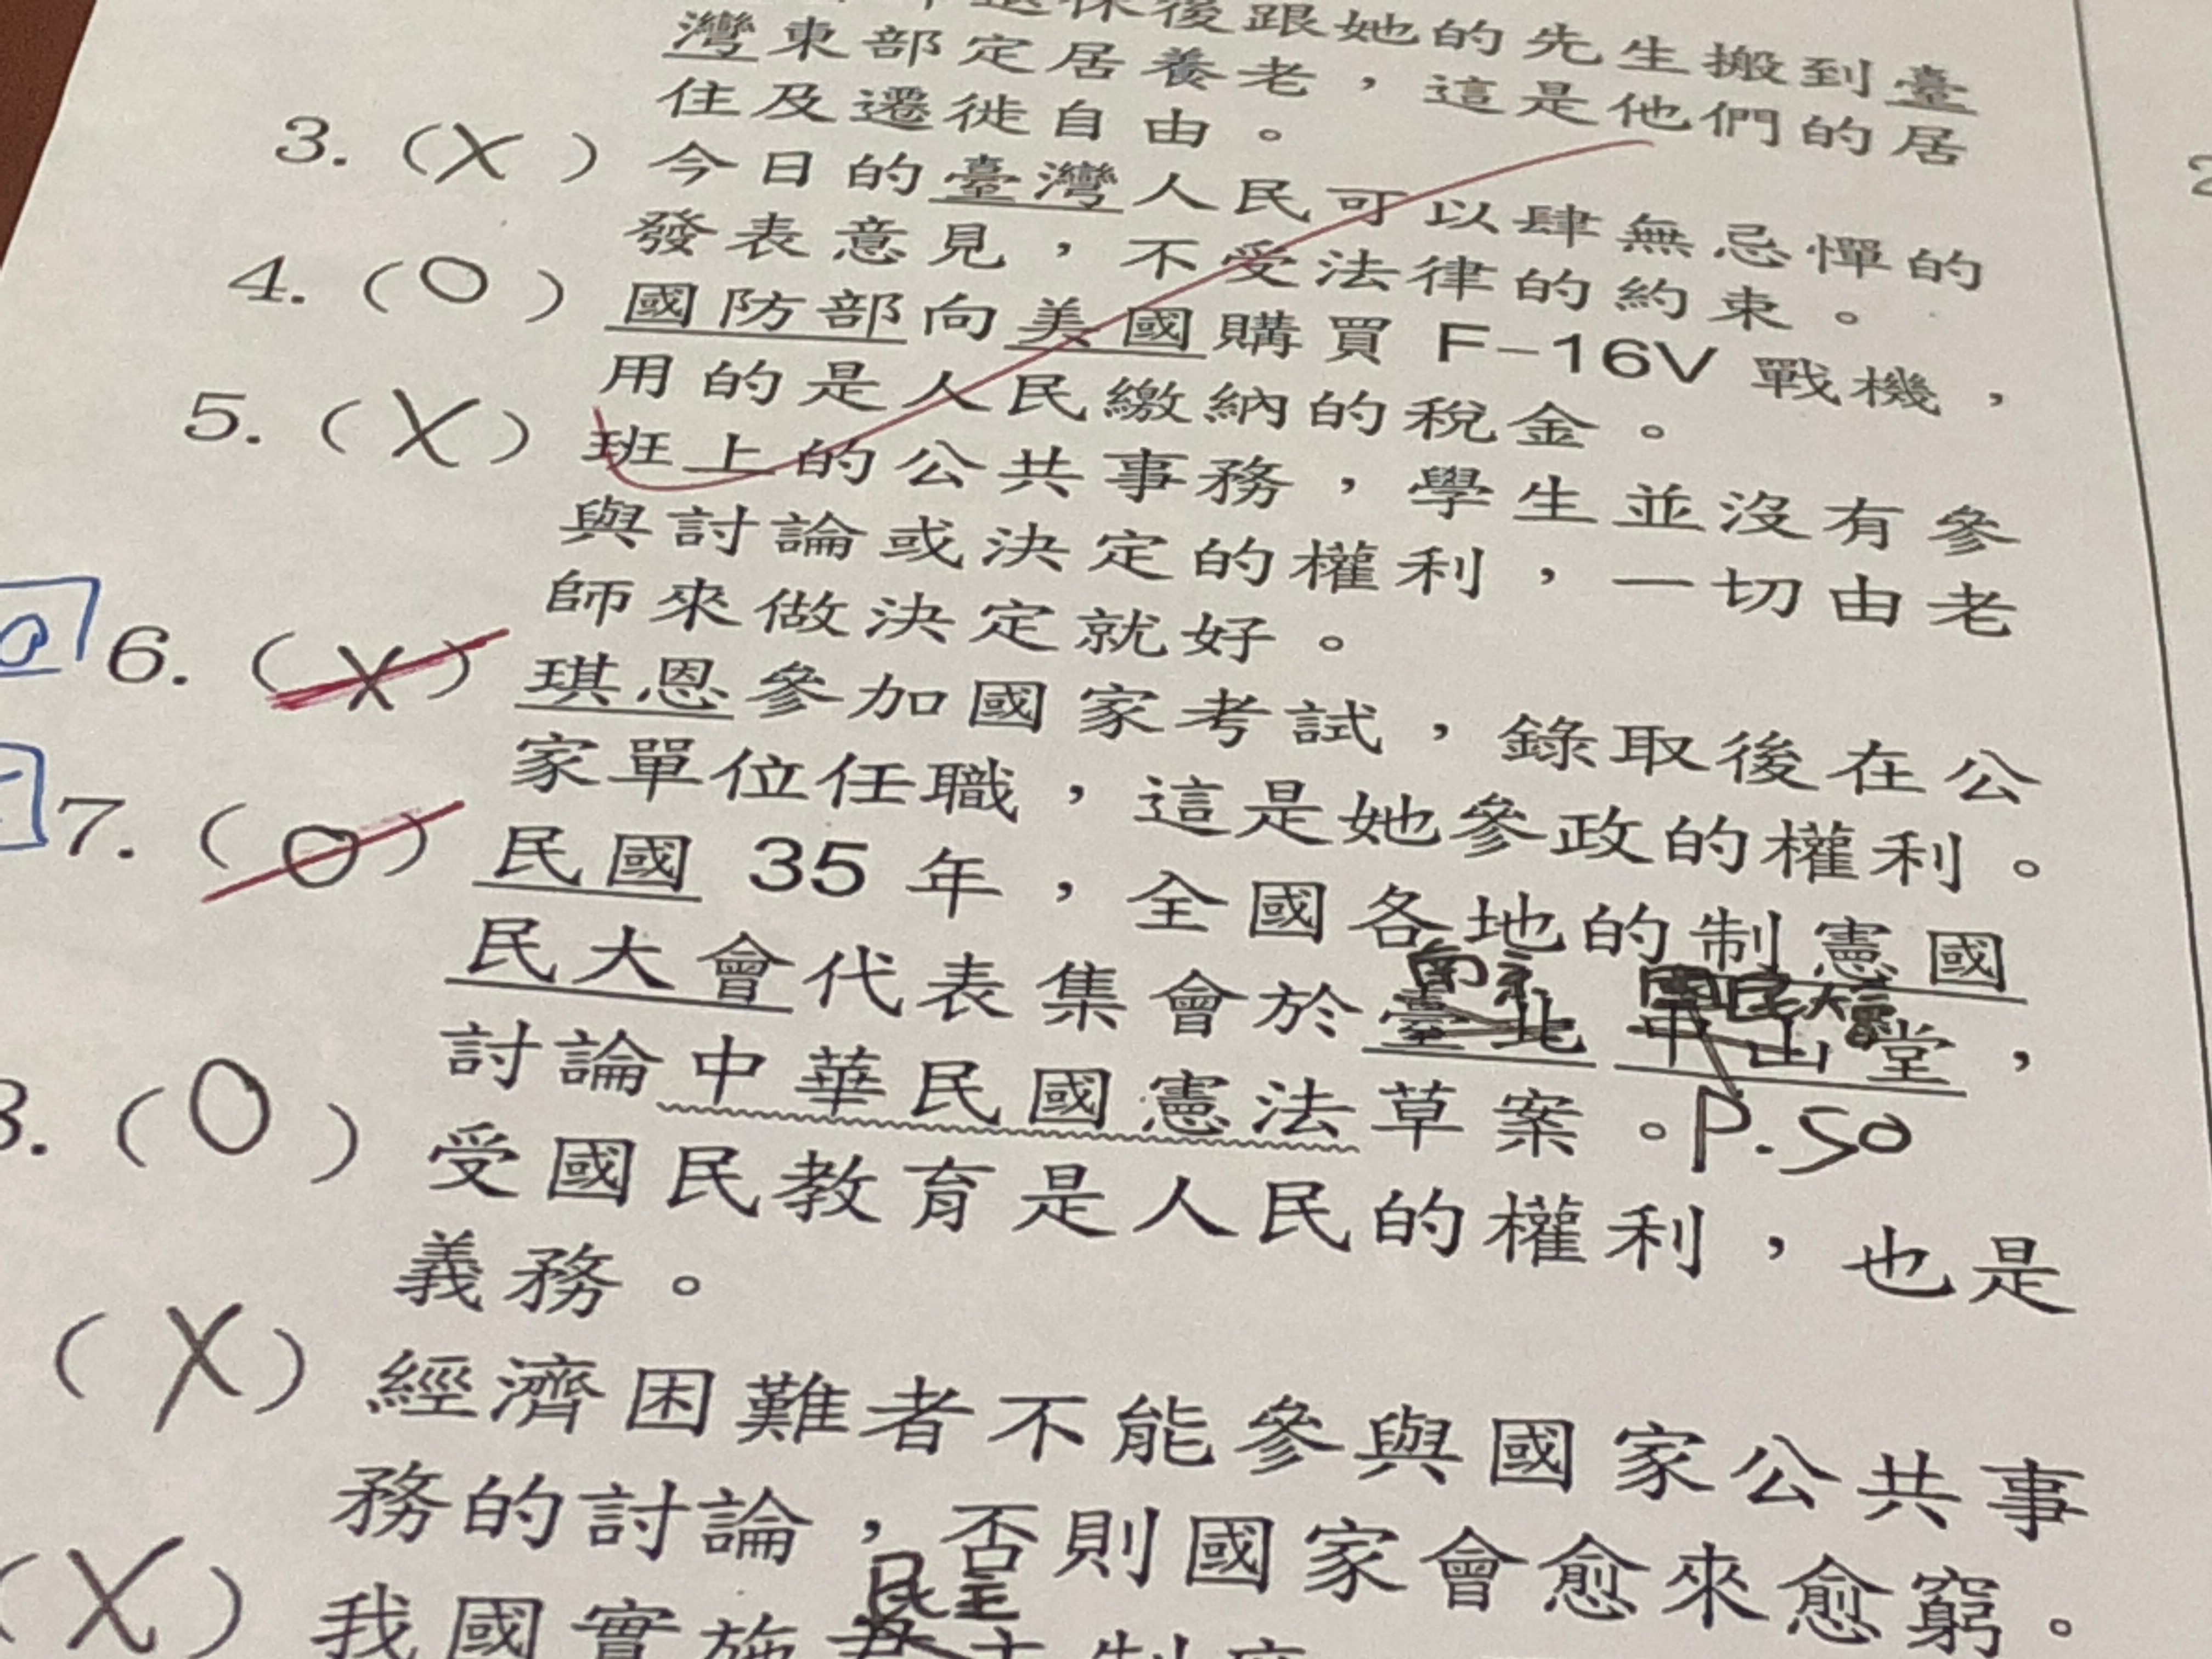 退休後跟她的先生搬到臺
灣東部定居養老，這是他們的居
住及遷徙自由。
3. (X) 今日的臺灣人民可以肆無忌憚的
發表意見，不受法律的約束。
4. (O) 國防部向美國購買 F-16V 戰機，
用的是人民繳納的稅金。
5. (X) 班上的公共事務，學生並沒有參
與討論或決定的權利，一切由老
師來做決定就好。
6. (X) 琪恩參加國家考試，錄取後在公
家單位任職，這是她參政的權利。
7. (O) 民國 35 年，全國各地的制憲國
南京 國民大會
民大會代表集會於臺北中山堂，
討論中華民國憲法草案。P.50
8. (O) 受國民教育是人民的權利，也是
義務。
(X) 經濟困難者不能參與國家公共事
務的討論，否則國家會愈來愈窮。
民主
(X) 我國實施君主制度